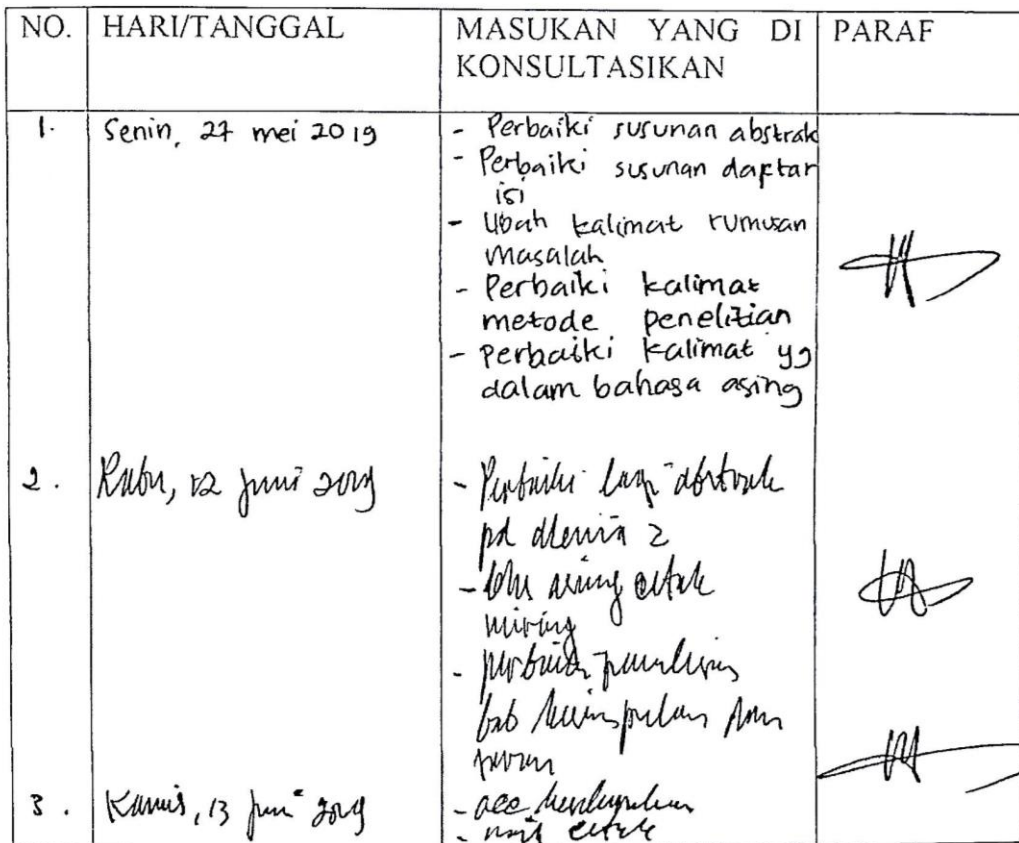 NO.
HARI/TANGGAL
MASUKAN YANG DI
KONSULTASIKAN
PARAF
1.
Senin, 27 mei 2019
- Perbaiki susunan abstrak
- Perbaiki susunan daftar
isi
- Ubah kalimat rumusan
masalah
- Perbaiki kalimat
metode penelitian
- perbaiki kalimat yg
dalam bahasa asing
2.
Rabu, 12 Juni 2019
- Perbaiki lagi abstrak
pd alenia 2
- asing cetak
miring
- perbaiki penulisan
bab kesimpulan dan
saran
3.
Kamis, 13 Juni 2019
- acc
- cetak